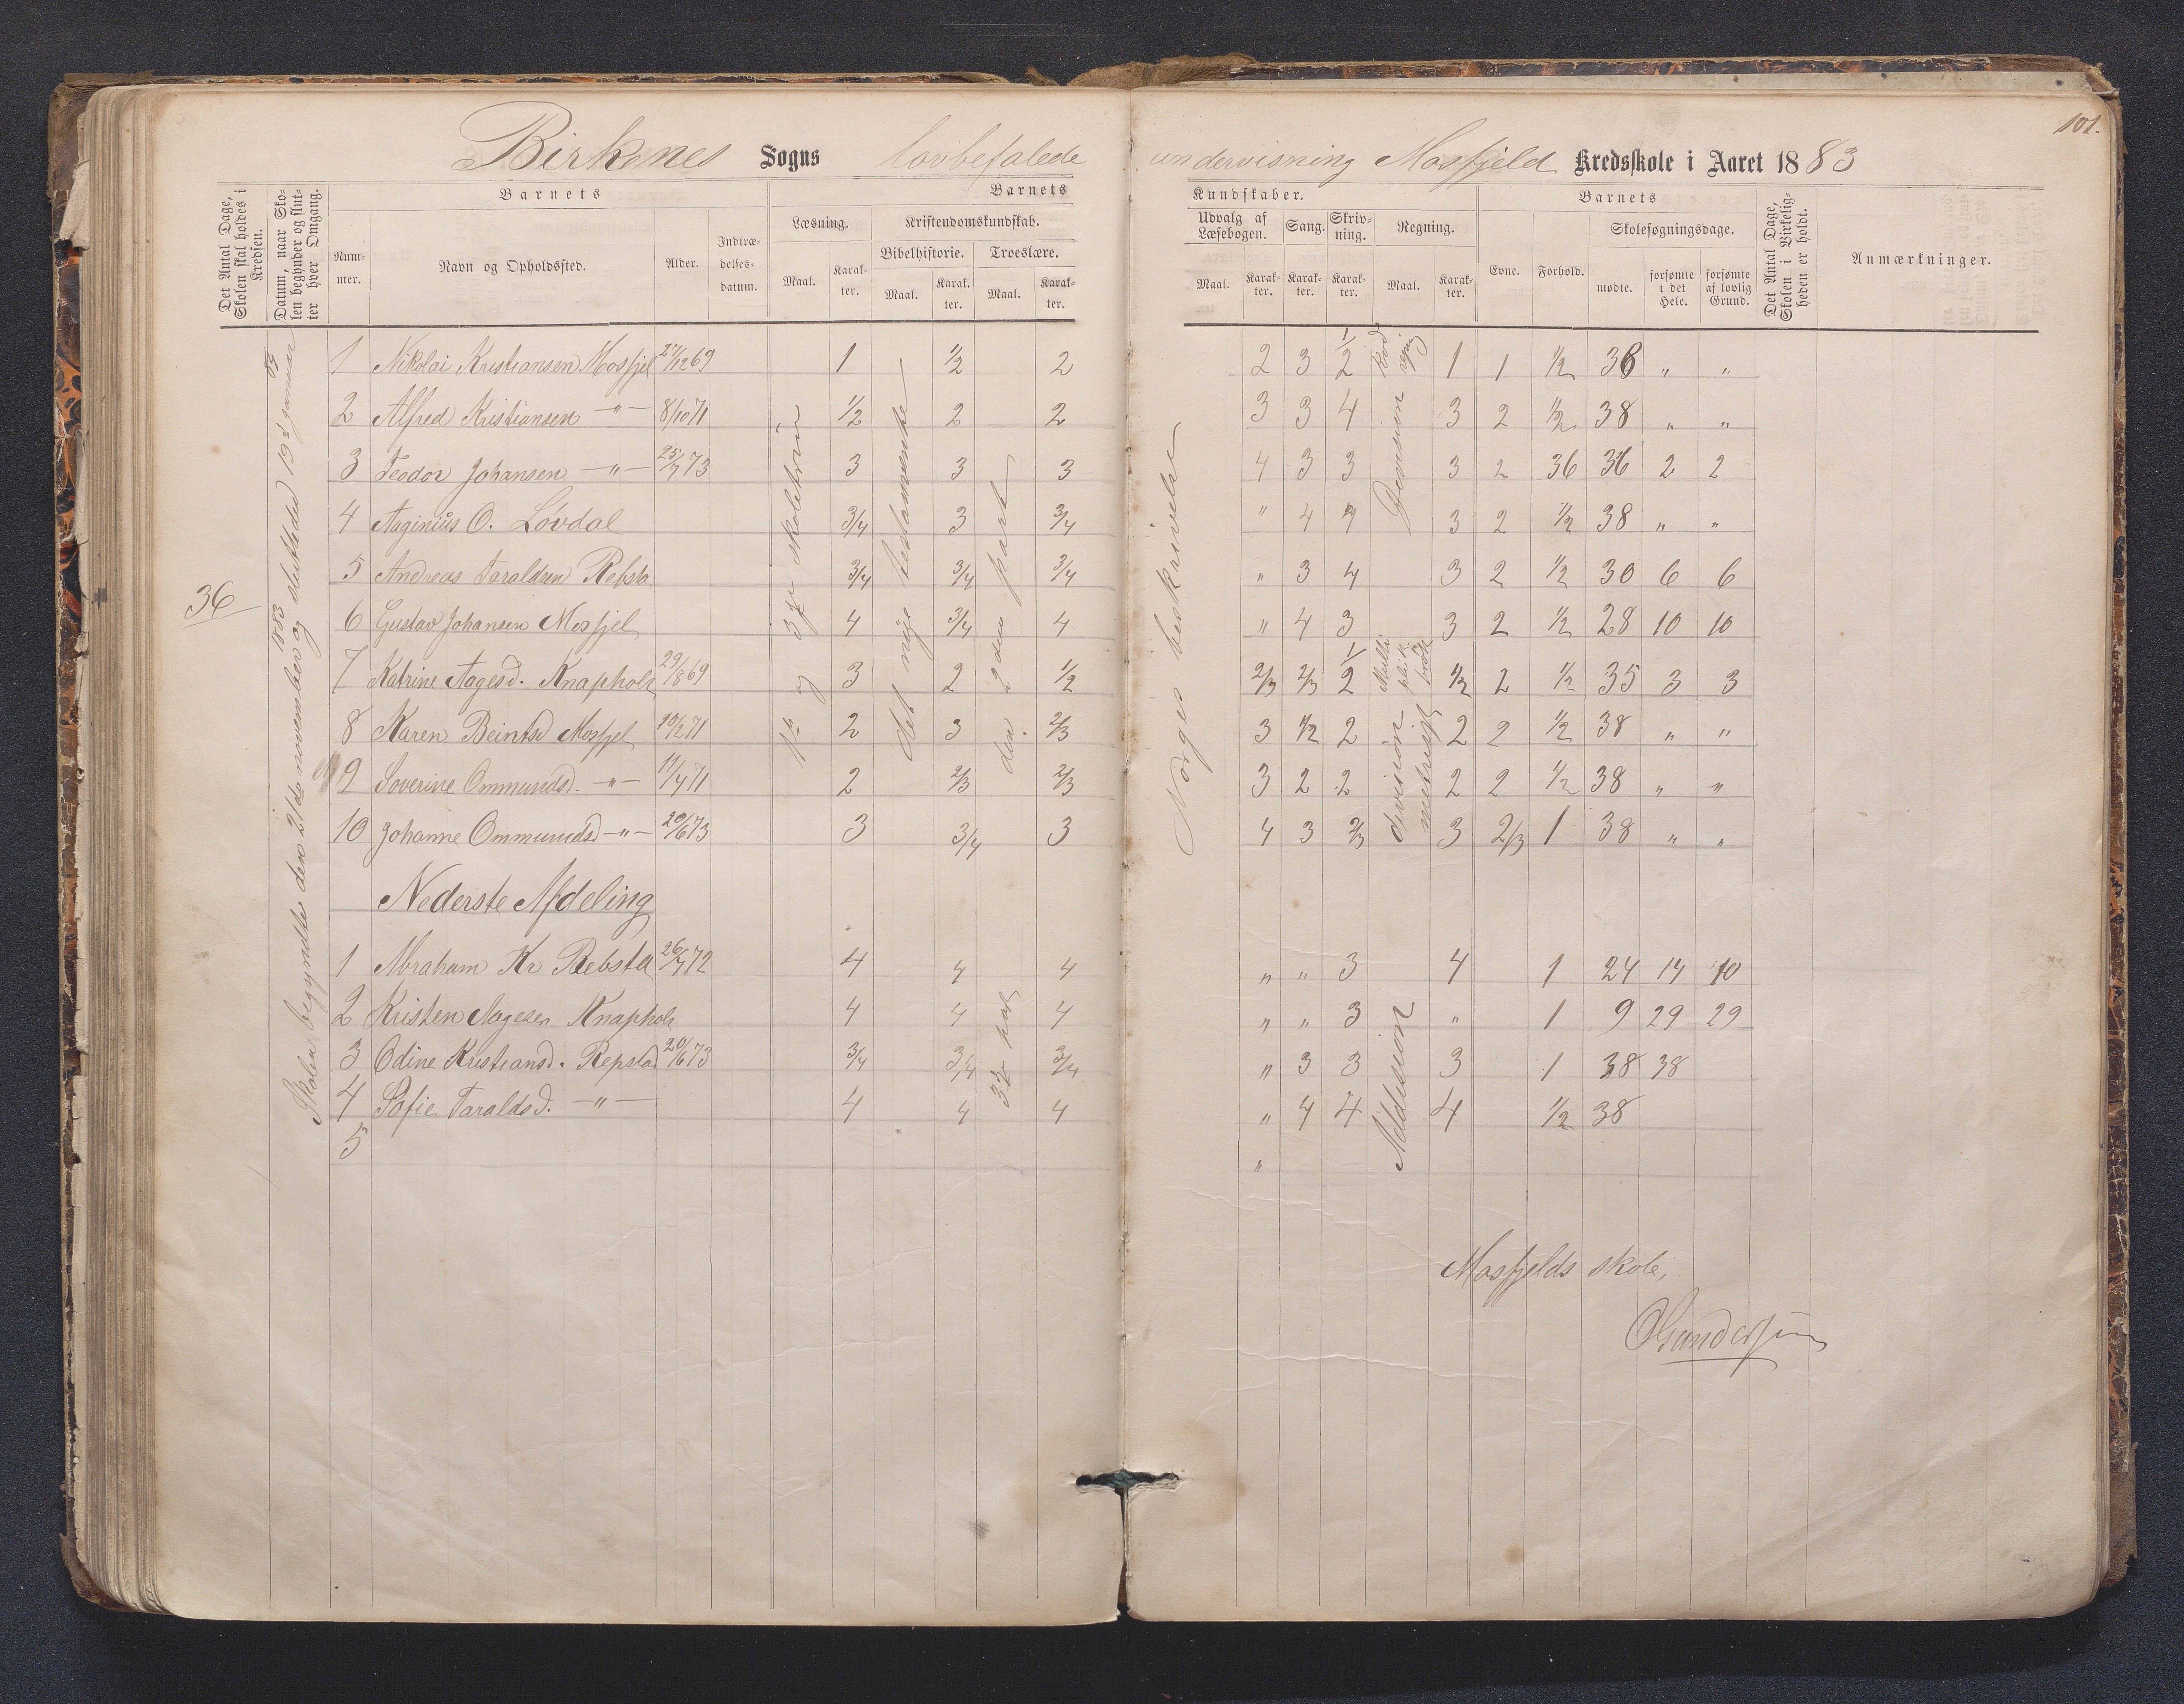 101.
Birkenes Sogns lovbefalede undervisning Mosfjeld Kredsskole i Aaret 1883
Det Antal Dage, Skolen skal holdes i Kredsen.
Datum, naar Skolen begynder og slutter hver Omgang.
Barnets
Nummer.
Navn og Opholdssted.
Alder.
Indtrædelsesdatum.
Barnets
Læsning.
Maal.
Karakter.
Kristendomskundskab.
Bibelhistorie.
Maal.
Karakter.
Troeslære.
Maal.
Karakter.
Kundskaber.
Udvalg af Læsebogen.
Maal.
Karakter.
Sang.
Karakter.
Skrivning.
Karakter.
Regning.
Maal.
Karakter.
Barnets
Evne.
Forhold.
Skolesøgningsdage.
mødte.
forsømte i det Hele.
forsømte af lovlig Grund.
Det Antal Dage, Skolen i Virkeligheden er holdt.
Anmærkninger.
36
Skolen begyndte den 21de november 1883 og sluttede 19de januar 84
og 3die skoletrin
det nye testamente
den 2den part
Norges beskrivelse
Division
1 Nikolai Kristiansen Mosfjel 27/12 69 1 1/2 2 2 3 1/2 1 1 1/2 36 " "
2 Alfred Kristiansen —"— 8/10 71 1/2 2 2 3 3 4 3 2 1/2 38 " "
3 Teodor Johansen —"— 25/7 73 3 3 3 4 3 3 3 2 36 36 2 2
4 Aaginius O. Lovdal 3/4 3 3/4 " 4 4 3 2 1/2 38 " "
5 Andreas Taraldsen Rebsta 3/4 3/4 3/4 " 3 4 3 2 1/2 30 6 6
6 Gustav Johansen Mosfjel 4 3/4 4 " 4 3 3 2 1/2 28 10 10
7 Katrine Aagesd. Knaphola 29/8 69 3 2 1/2 2/3 2/3 1/2 1/2 2 1/2 35 3 3
8 Karen Beintsd Mosfjel 10/2 71 2 3 2/3 3 1/2 2 2 2 1/2 38 " "
9 Soverine Ommundsd. —"— 11/4 71 2 2/3 2/3 3 2 2 2 2 1/2 38 " "
10 Johanne Ommundsd —"— 20/6 73 3 3/4 3 4 3 2/3 3 2/3 1 38 " "
division
metrisk
Nederste Afdeling
1 Abraham Kr Rebsta 26/7 72 4 4 4 " " 3 4 1 24 14 10
2 Kristen Aagesen Knaphola 4 4 4 " " 3 " 1 9 29 29
3 Odine Kristiansd. Repstad 20/6 73 3/4 3/4 3/4 " 3 3 3 1 38 38
4 Sofie Taraldsd. —"— 4 4 4 " 4 4 4 1/2 38
5 "
Addision
Mosfjelds skole,
O Gundersen